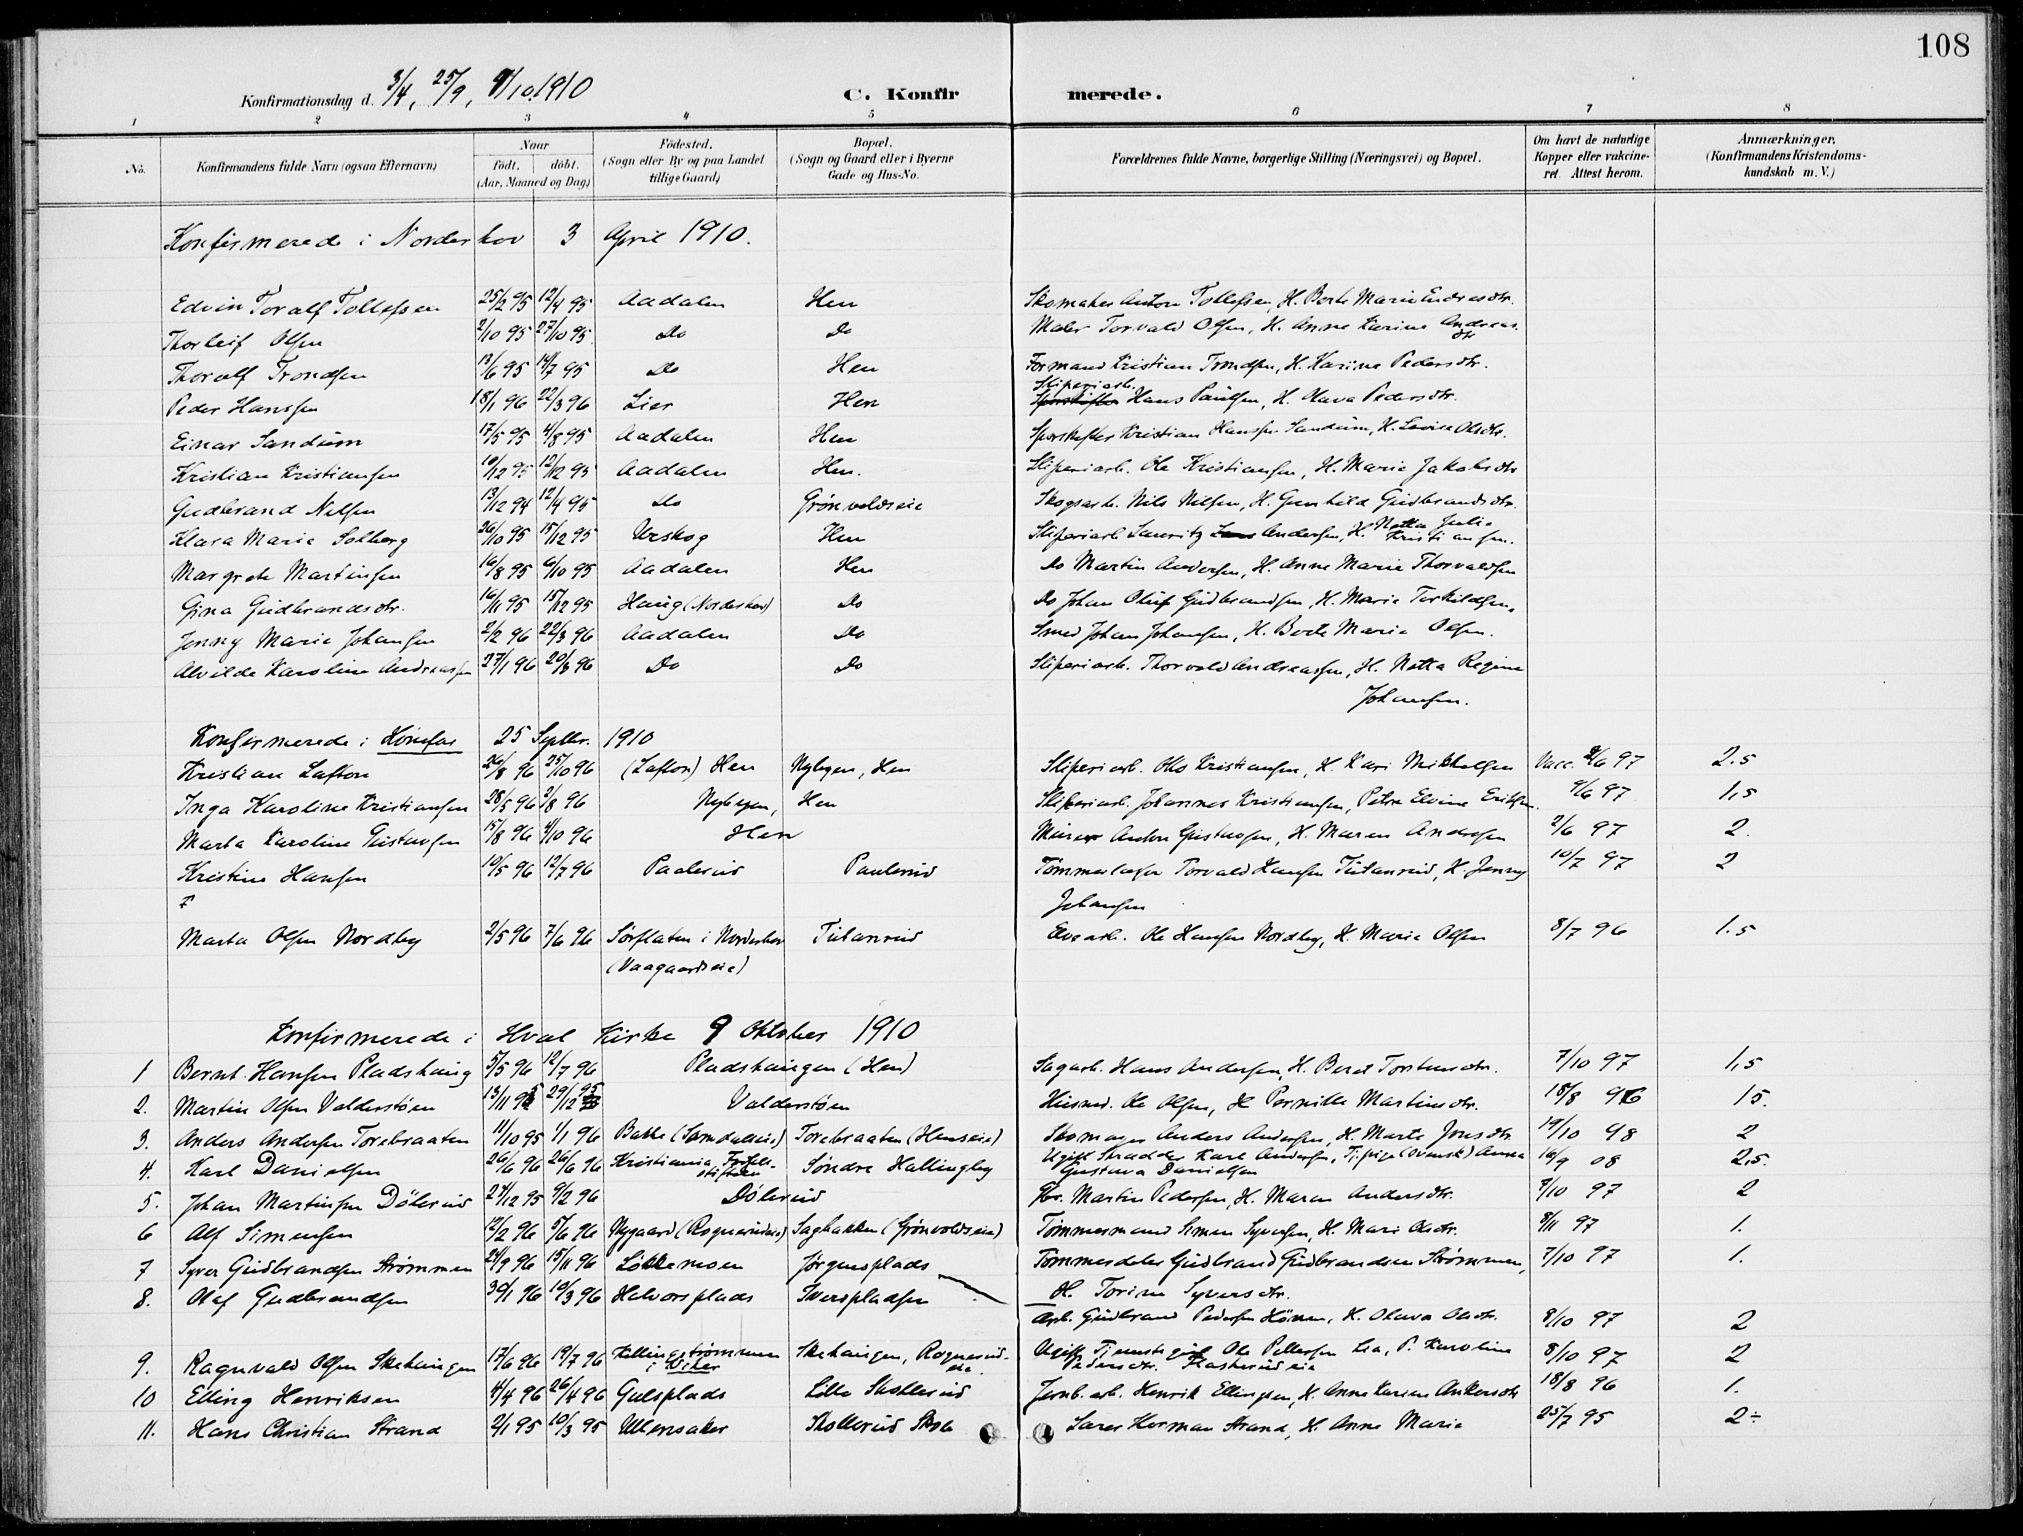 108
Konfirmationsdag d. 3/4, 25/9, 9/10. 1910 C. Konfirmerede.
1 2 3 4 5 6 7 8
No. Konfirmandens fulde Navn (ogsaa Efternavn) Naar født. døbt. (Aar, Maaned og Dag) Födested. (Sogn eller By og paa Landet tillige Gaard) Bopæl. (Sogn og Gaard eller i Byerne Gade og Hus-No. Forældrenes fulde Navne, borgerlige Stilling (Næringsvei) og Bopæl. Om havt de naturlige Kopper eller vakcineret. Attest herom. Anmærkninger. (Konfirmandens Kristendomskundskab m. V.)
Konfirmerede i Norderhov 3 April 1910.
Edvin Toralf Tollefsen 25/2 95 12/4 95 Aadalen Hen Skomaker Anton Tollefsen, H. Berte Marie Endresdtr.
Thorleif Olsen 2/10 95 27/10 95 Do Do Maler Torvald Olsen, H. Anne Karine Andreasdtr
Thoralf Trondsen 13/6 95 14/7 95 Do Hen Formand Kristian Trondsen, H. Karine Pedersdtr.
Peder Hansen 18/1 96 22/3 96 Lier Hen Sliperiarb. Hans Paulsen, H. Olava Pedersdtr.
Einar Sandum 17/5 95 4/8 95 Aadalen Hen Sporskifter Kristian Hansen Sandum, H. Lovise Olsdtr.
Kristian Kristiansen 10/12 95 12/12 95 Aadalen Hen. Sliperiarb. Ole Kristiansen, H. Marie Jakobsdtr
Gudbrand Nilsen 13/12 94 12/4 95 Do Grönvoldseie Skogsarb. Nils Nilsen, H. Gunhild Gudbrandsdtr.
Klara Marie Solberg 26/10 95 15/12 95 Urskog Hen Sliperiarb Lauritz Andersen, H. Netta Julie Kristiansen.
Margrete Martinsen 16/8 95 6/10 95 Aadalen Hen Do Martin Andersen, H. Anne Marie Thorvaldsen
Gina Gudbrandsdtr. 16/11 95 15/12 95 Haug (Norderhov) Do Do Johan Oluf Gudbrandsen, H. Marie Torkildsen.
Jenny Marie Johansen 2/2 96 22/3 96 Aadalen Do Smed Johan Johansen, H. Berte Marie Olsen.
Alvilde Karoline Andreassen 27/1 96 20/3 96 Do Do Sliperiarb. Thorvald Andreassen, H. Netta Regine
Johansen.
Konfirmerede i Hønefos 25 Septbr. 1910
Kristian Lafton 26/8 96 25/10 96 (Lafton) Hen Nybyen, Hen Sliperiarb. Otto Kristiansen, H. Kari Mikkelsen Vacc. 2/6 97 2.5
Inga Karoline Kristiansen 28/5 96 2/8 96 Nybyen, Hen Sliperiarb. Johannes Kristiansen, Petra Elvine Eriksen. 9/6 97 1,5
Marta Karoline Gustavsen 15/8 96 4/10 96 Hen Murer Anton Gustavsen, H. Maren Andersen 2/6 97 2.
Kristine Hansen 10/5 96 12/7 96 Paulerud Paulerud Tømmerlager Torvald Hansen Tutanrud, H. Jenny 10/7 97 2
Johansen
Marta Olsen Nordby 2/5 96 7/6 96 Sørflaten i Norderhov Tutanrud Elvearb. Ole Hansen Nordby, H. Marie Olsen 8/7 96 1.5
(Vaagaardseie)
Konfirmerede i Hval Kirke 9 Oktober 1910
1 Bernt Hansen Pladshaug 5/5 96 12/7 96 Pladshaugen (Hen) Sagarb. Hans Andersen, H. Beret Torstensdtr. 7/10 97 1,5
2. Martin Olsen Valderstøen 13/11 95 29/12 95 Valderstøen Husmd. Ole Olsen, H Pernille Martinsdtr. 18/8 96 15.
3. Anders Andersen Torebraaten 11/10 95 1/1 96 Bakke (Samdalseie) Torebraaten (Henseie) Skomager Anders Andersen, H. Marte Jonsdtr 19/10 98 2
4. Karl Danielsen 26/6 96 26/6 96 Kristiania Fødselsstiftelsen Søndre Hallingby Ugift Skrædder Karl Andersen, T.pige (Svensk) Anna Gustava Danielsen 16/9 08 2,5.
5. Johan Martinsen Dölerud 24/12 95 9/2 96 Dölerud Gbr. Martin Pedersen, H. Maren Andersdtr. 7/10 97 2
6 Alf Simensen 12/2 96 5/6 96 Nygaard (Rognerudeie) Sagbakken (Grönvoldseie) Tømmermand Simen Syversen, H. Mari Olsdtr. 8/11 97 1.
7 Syver Gudbrandsen Strømmen 24/9 96 15/11 96 Løkkemoen Jørgensplads Tømmerdeler Gudbrand Gudbrandsen Strømmen, 7/10 97 1.
8. Olaf Gudbrandsen 30/1 96 19/3 96 Halvorsplads Iverspladsen H. Torine Syversdtr.
Arb. Gudbrand Pedersen Hönen, H. Olava Olsdtr. 8/10 97 2
9. Ragnvald Olsen Skehaugen 17/6 96 19/7 96 Killingstrømmen i Viker Skehaugen, Rognerudeie. Ugift Tjenestegut Ole Pettersen Lia, P. Karoline Pedersdtr. 8/10 97 2
10 Elling Henriksen 4/4 96 26/4 96 Gulsplads Lille Skollerud Jernb.arb. Henrik Ellingsen, H. Anne Karine Ankersdtr 18/8 96 1.
11. Hans Christian Strand 2/1 95 10/3 95 Ullensaker Skollerud Skole Lærer Herman Strand, H. Anne Marie 25/7 95 2÷